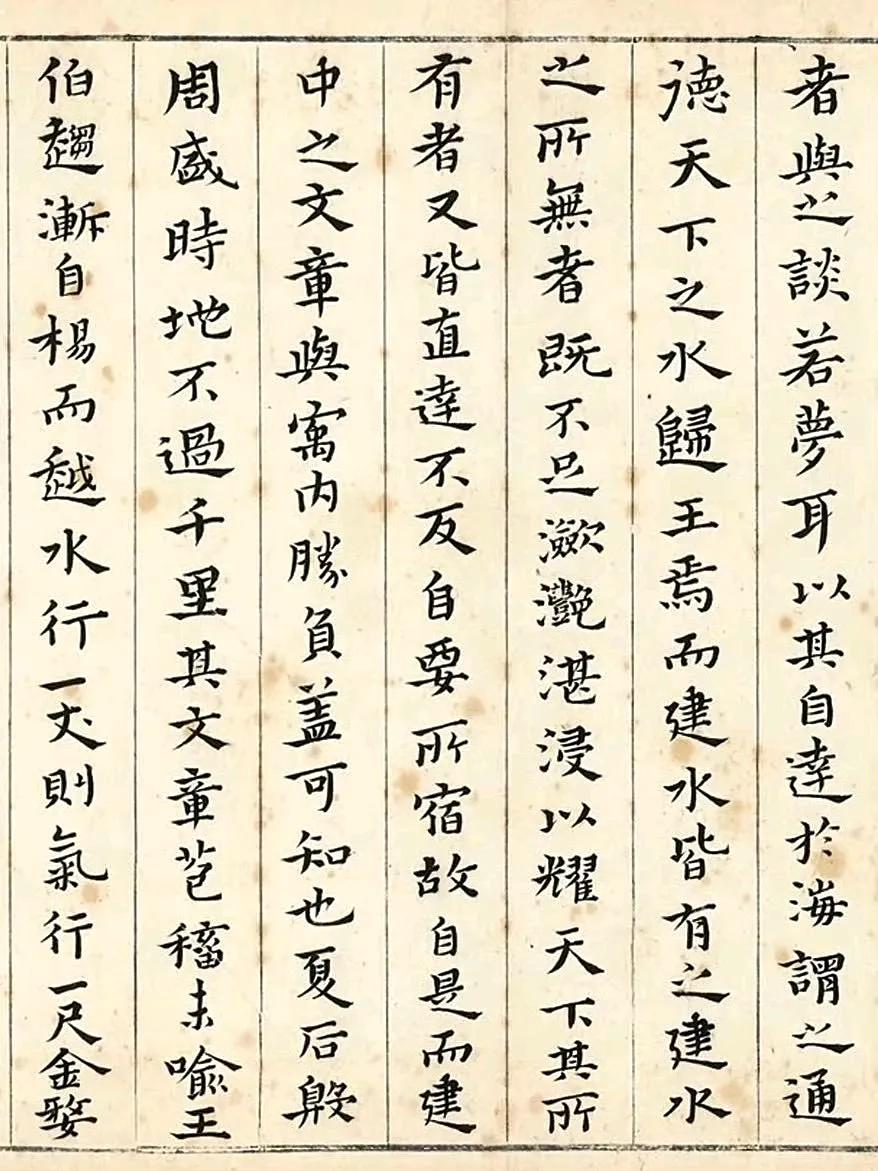 者與之談若夢耳以其自達於海謂之通
德天下之水歸王焉而建水皆有之建水
之所無者既不足瀲灧湛浸以耀天下其所
有者又皆直達不反自要所宿故自是而建
中之文章與寓内勝負盖可知也夏后殷
周盛時地不過千里其文章苞稸未喻王
伯趨漸自楊而越水行一丈則氣行一尺金婺